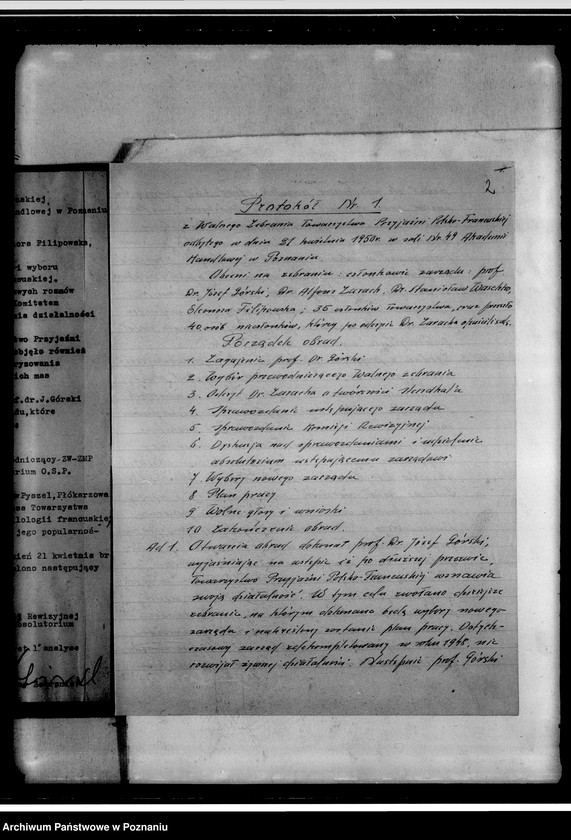 2
Protokół Nr 1.
z Walnego Zebrania Towarzystwa Przyjaźni Polsko-Francuskiej
odbytego w dniu 21 kwietnia 1950 r. w sali Nr 49 Akademii
Handlowej w Poznaniu
Obecni na zebraniu: członkowie zarządu: prof.
Dr. Józef Górski, Dr. Alfons Zarach, Dr. Stanisław Waschko,
Eleonora Filipowska; 35 członków Towarzystwa, oraz przeszło
40 osób nieczłonków, którzy po odczycie Dr. Zaracha opuścili salę.
Porządek obrad.
1. Zagajenie prof. Dr Górski
2. Wybór przewodniczącego Walnego zebrania
3. Odczyt Dr. Zaracha o twórczości Stendhal'a
4. Sprawozdanie ustępującego zarządu
5. Sprawozdanie Komisji Rewizyjnej
6. Dyskusja nad sprawozdaniami i udzielenie
absolutorium ustępującemu zarządowi
7 Wybory nowego zarządu
8 Plan pracy
9 Wolne głosy i wnioski
10 Zakończenie obrad.
Ad 1. Otwarcia obrad dokonał prof. Dr. Józef Górski,
wyjaśniając na wstępie że po dłuższej przerwie,
Towarzystwo Przyjaźni Polsko-Francuskiej wznawia
swoją działalność. W tym celu zwołano dzisiejsze
zebranie, na którym dokonane będą wybory nowego
zarządu i nakreślony zostanie plan pracy. Dotych-
czasowy zarząd zdekompletowany w roku 1948 nie
rozwijał żywej działalności. Następnie prof. Górski
ndlowej w Poznaniu
ora Filipowska,
ri wyboru
owuskiej,
wych rozmów
Komitetem
nia działalności
two Przyjaźni
objęło również
rysowania
ich mas
f.dr.J.Górski
du,które
dniczący-ZW-ZMP
rium O.S.P.
Pyszel,Płókarzowa
sa Towarzystwa
lologii francuskiej
jego popularnoś-
zień 21 kwietnia br
lono następujący
j Rewizyjnej
bsolutorium
et l'analyse
Archiwum Państwowe w Poznaniu